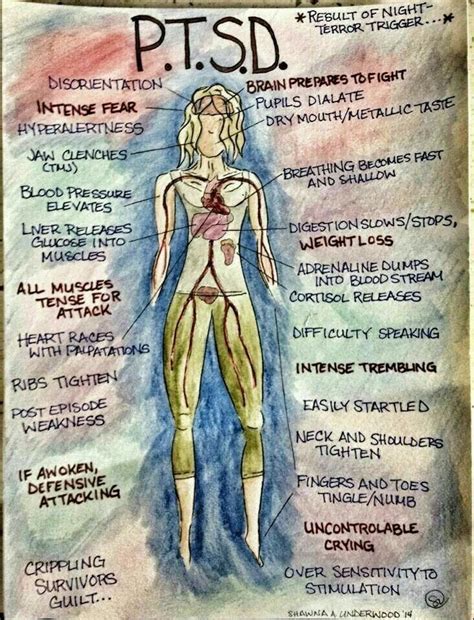 P.T.S.D.
*RESULT OF NIGHT-
TERROR TRIGGER...*
DISORIENTATION
INTENSE FEAR
HYPERALERTNESS
JAW CLENCHES
(TMJ)
BLOOD PRESSURE
ELEVATES
LIVER RELEASES
GLUCOSE INTO
MUSCLES
ALL MUSCLES
TENSE FOR
ATTACK
HEART RACES
WITH PALPATATIONS
RIBS TIGHTEN
POST EPISODE
WEAKNESS
IF AWOKEN,
DEFENSIVE
ATTACKING
CRIPPLING
SURVIVORS
GUILT...
BRAIN PREPARES TO FIGHT
PUPILS DIALATE
DRY MOUTH/METALLIC TASTE
BREATHING BECOMES FAST
AND SHALLOW
DIGESTION SLOWS/STOPS,
WEIGHT LOSS
ADRENALINE DUMPS
INTO BLOOD STREAM
CORTISOL RELEASES
DIFFICULTY SPEAKING
INTENSE TREMBLING
EASILY STARTLED
NECK AND SHOULDERS
TIGHTEN
FINGERS AND TOES
TINGLE/NUMB
UNCONTROLABLE
CRYING
OVER SENSITIVITY TO
STIMULATION
SHAWNA A. UNDERWOOD '14